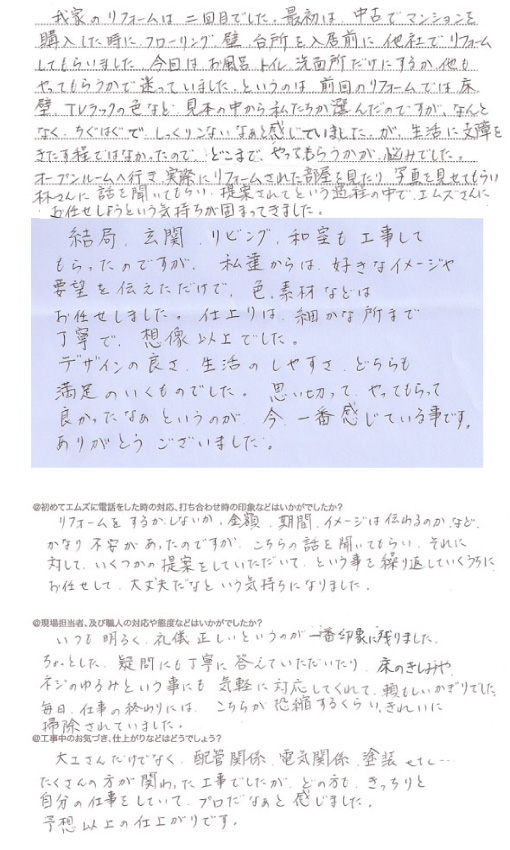 我家のリフォームは二回目でした。最初は、中古でマンションを
購入した時に、フローリング、壁、台所を入居前に他社でリフォーム
してもらいました。今回はお風呂、トイレ、洗面所だけにするか、他も
やってもらうかで迷っていました。というのは、前回のリフォームでは、床、
壁、TVラックの色など、見本の中から私たちが選んだのですが、なんと
なく、ちぐはぐで、しっくりこないなぁと感じていました。が、生活に支障を
きたす程ではなかったので、どこまで、やってもらうかが、悩みでした。
オープンルームへ行き、実際にリフォームされた部屋を見たり、写真を見せてもらい
林さんに話を聞いてもらい、提案されてという過程の中で、エムズさんに
お任せしようという気持ちが固まってきました。
結局、玄関、リビング、和室も工事して
もらったのですが、私達からは、好きなイメージや
要望を伝えただけで、色、素材などは
お任せしました。仕上りは、細かな所まで
丁寧で、想像以上でした。
デザインの良さ、生活のしやすさ、どちらも
満足のいくものでした。思い切って、やってもらって
良かったなぁというのが、今、一番感じている事です。
ありがとうございました。
@初めてエムズに電話をした時の対応、打ち合わせ時の印象などはいかがでしたか？
リフォームをするか、しないか、金額、期間、イメージは伝わるのか、など、
かなり不安があったのですが、こちらの話を聞いてもらい、それに
対して、いくつかの提案をしていただいて、という事を繰り返していくうちに
お任せして、大丈夫だなという気持ちになりました。
@現場担当者、及び職人の対応や態度などはいかがでしたか？
いつも明るく、礼儀正しいというのが一番印象に残りました。
ちょっとした、疑問にも丁寧に答えていただいたり、床のきしみや、
ネジのゆるみという事にも気軽に対応してくれて、頼もしいかぎりでした。
毎日、仕事の終わりには、こちらが恐縮するくらい、きれいに
掃除されていました。
@工事中のお気づき、仕上がりなどはどうでしょう？
大工さんだけでなく、配管関係、電気関係、塗装 etc…
たくさんの方が関わった工事でしたが、どの方も、きっちりと
自分の仕事をしていて、プロだなぁと感じました。
予想以上の仕上がりです。